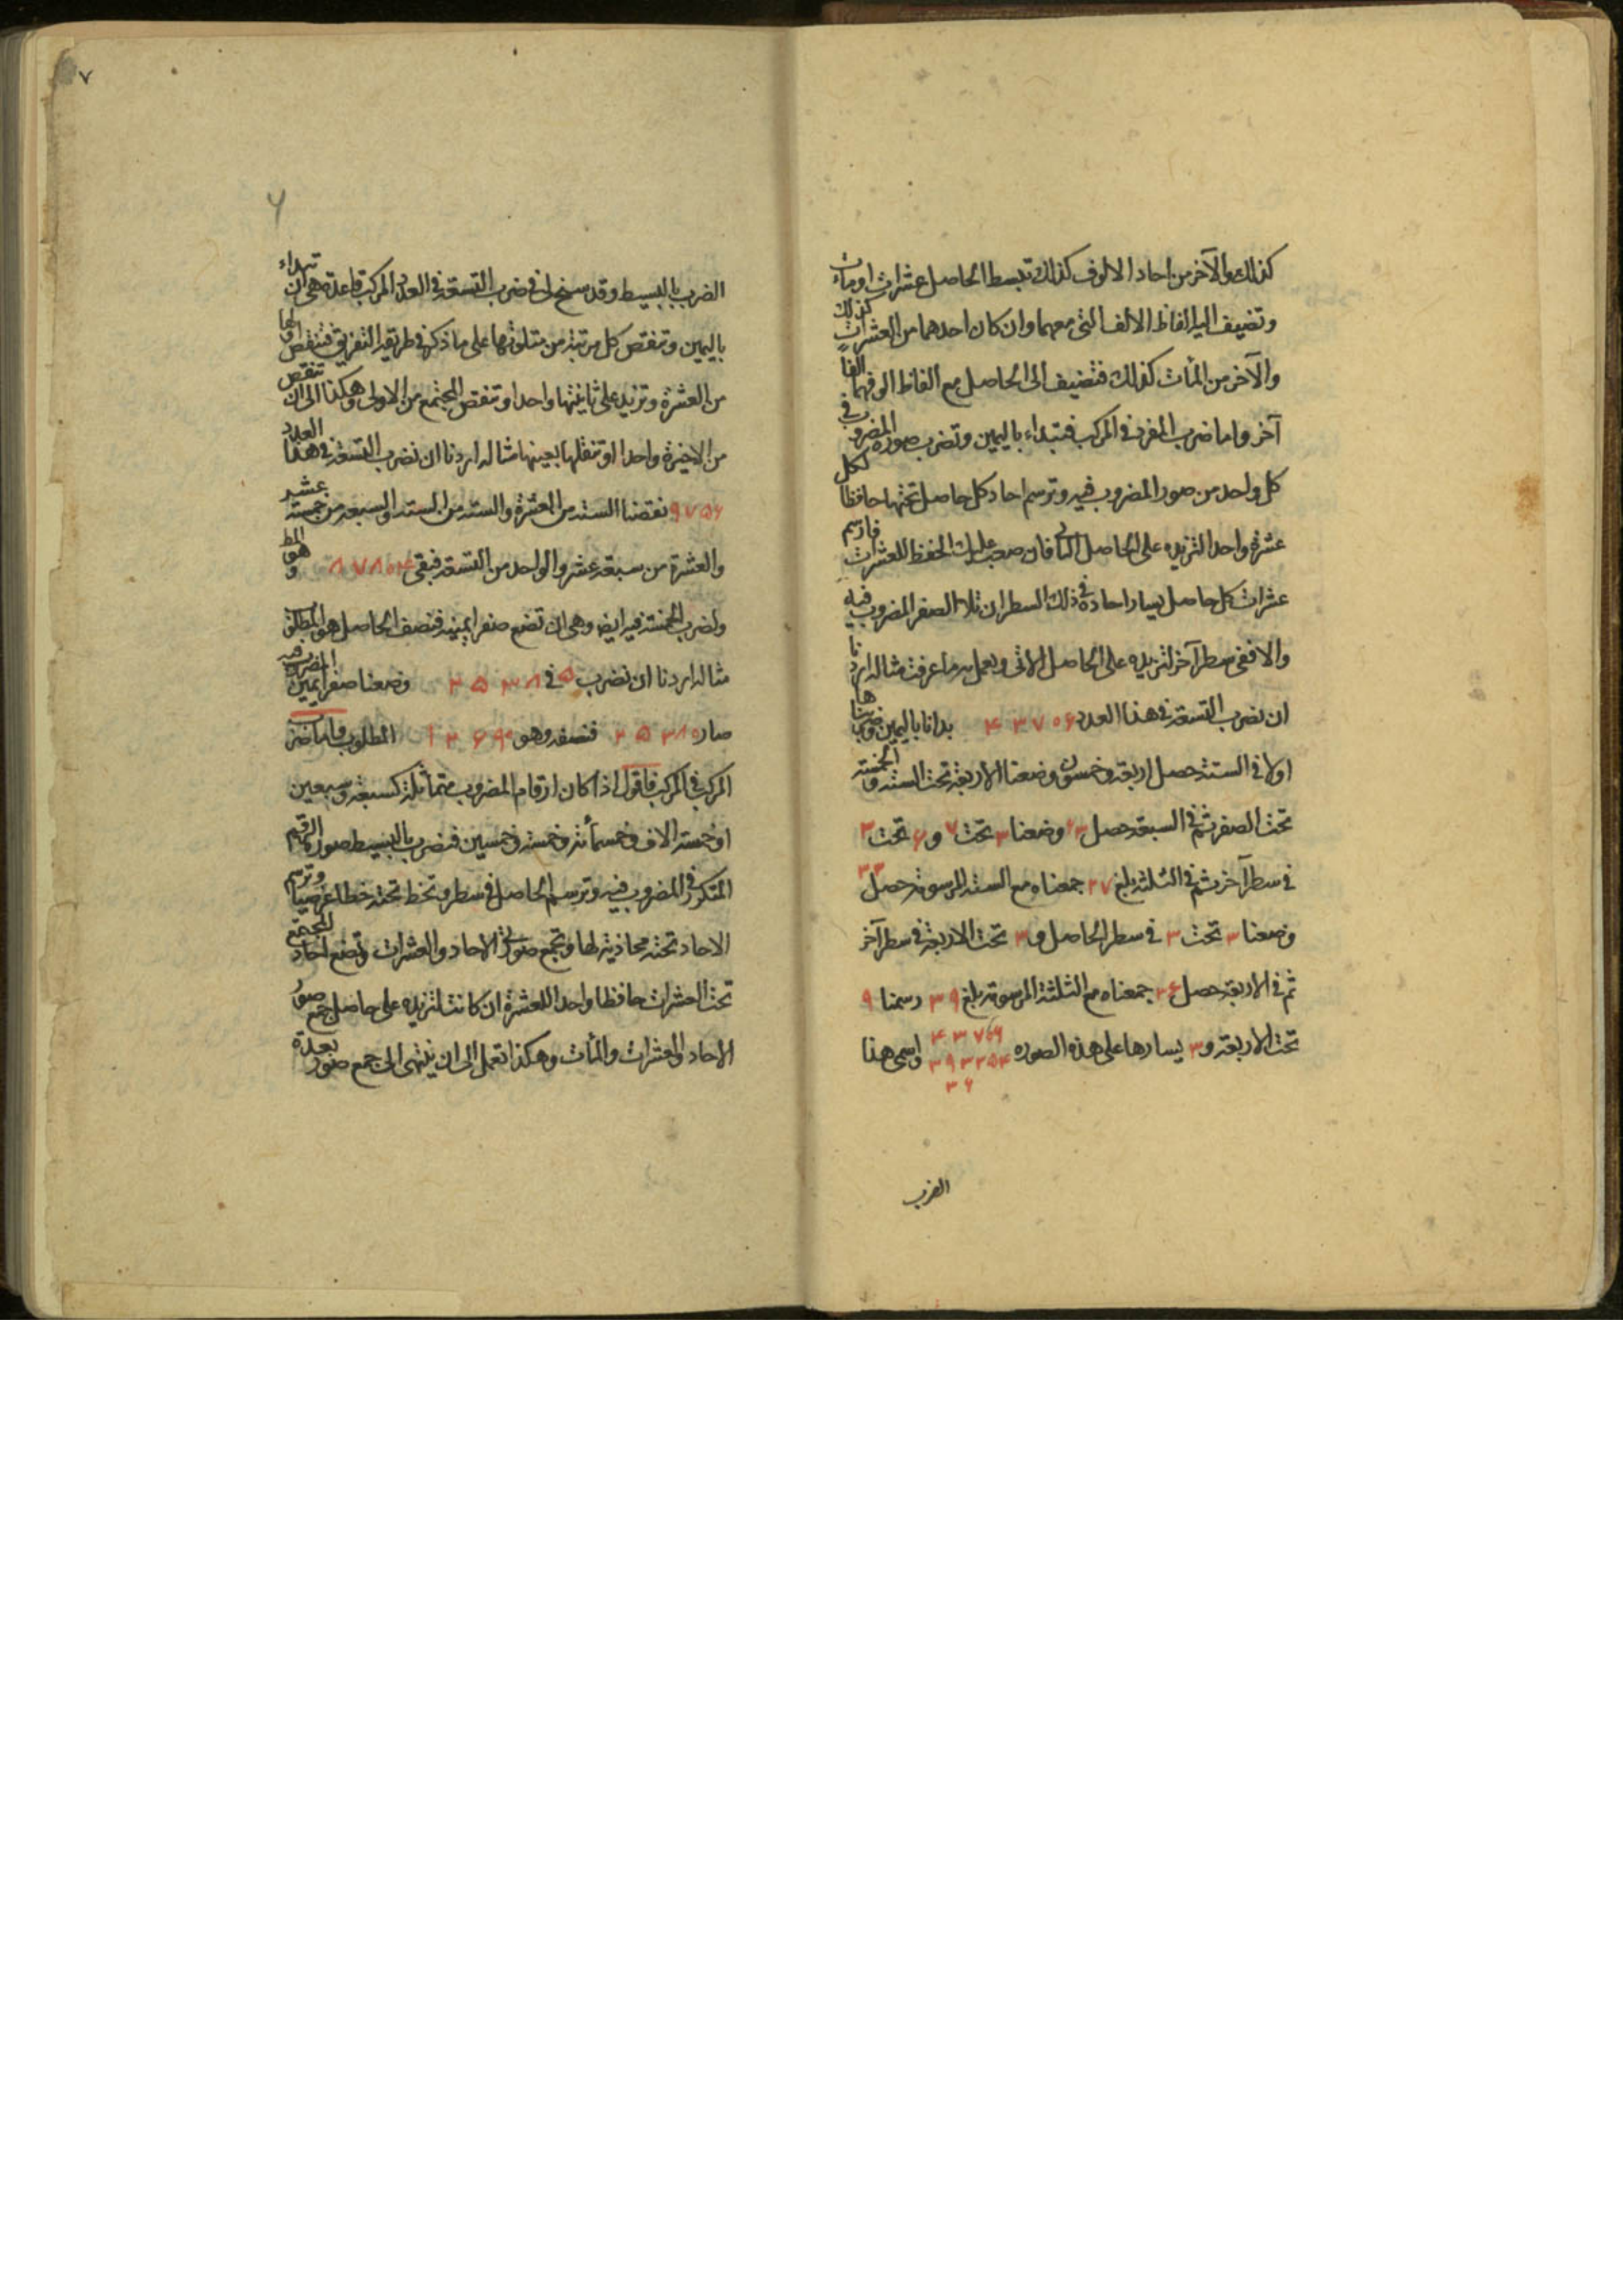 كذلك والآخر من احاد الالوف كذلك تبسط الحاصل عشرات او مأت
وتضيف اليه الفاظ الالف التى معهما وان كان احدهما من العشرات كذلك
والآخر من المأت كذلك فتضيف الى الحاصل مع الفاظ الوفهما الفا
آخر واما ضرب المفرد فى المركب فتبتداء باليمين وتضرب صورة المضروب فى
كل واحد من صور المضروب فيه وترسم احاد كل حاصل تحتها حافظا لكل
عشرة واحدا لتزيده على الحاصل فان صعب عليك الحفظ للعشرات فارسم
عشرات كل حاصل يسار احاده فى ذلك السطر ان تلا الصفر المضروب فيه
والا ففى سطر آخر لتزيده على الحاصل الاتى وبعمل ما عرفت مثاله اردنا
ان نضرب التسعة فى هذا العدد ۴۳۷۰۶ بدانا باليمين وضربناها
اولا فى الستة حصل اربعة وخمسون وضعنا الاربعة تحت الستة والخمسة
تحت الصفر ثم فى السبعة حصل ۶۳ وضعنا ۳ تحت ۷ و۶ تحت ۳
فى سطر آخر ثم فى الثلثة بلغ ۲۷ جمعناه مع الستة المرسومة حصل ۳۳
وضعنا ۳ تحت ۳ فى سطر الحاصل و۳ تحت الاربعة فى سطر آخر
ثم فى الاربعة حصل ۳۶ جمعناه مع الثلثة المرسومة بلغ ۳۹ رسمنا ۹
تحت الاربعة و۳ يسارها على هذه الصوره ۴۳۷۰۶ واسمى هذا
۳۹۳۳۵۴
۳۶
الضرب
۷
۶
الضرب بالبسيط وقد سنح لى فى ضرب التسعة فى العدد المركب قاعدة هى ان تبتداء
باليمين وتنقص كل مرتبة من متلوتها على ما ذكر فى طريقة التفريق فتنقص اولها
من العشرة وتزيد على ثانيتها واحدا وتنقص المجتمع من الاولى وهكذا الى ان تنقص
من الاخيرة واحدا او تنقلها بعينها مثاله اردنا ان نضرب التسعة فى هذا العدد
۹۷۵۶ نقصنا الستة من العشرة والستة من الستة والسبعة من خمسة عشر
والعشرة من سبعة عشر والواحد من التسعة فبقى ۸۷۸۰۴ وهو المط
ولضرب الخمسة فيه ايضا وهى ان تضع صفرا يمينه فنصف الحاصل هو المطلوب
مثاله اردنا ان نضرب ۵ فى ۲۵۳۸ وضعنا صفرا يمين المضروب فيه
صار ۲۵۳۸۰ فنصفه وهو ۱۲۶۹۰ المطلوب واما ضرب
المركب فى المركب فاقول اذا كان ارقام المضروب متماثلة كسبعة وسبعين
او خمسة الاف وخمسمأئة وخمسة وخمسين فنضرب بالبسيط صورة الرقم
المتكرر فى المضروب فيه وترسم الحاصل فى سطر وتخط تحته خطا عرضيا وترسم
الاحاد تحته محاذية لها وتجمع صورتى الاحاد والعشرات وتضع احاد المجتمع
تحت العشرات حافظا واحدا للعشرة ان كانت لتزيده على حاصل جمع صور
الاحاد والعشرات والمأت وهكذا تعمل الى ان ينتهى الى جمع صور بعدة